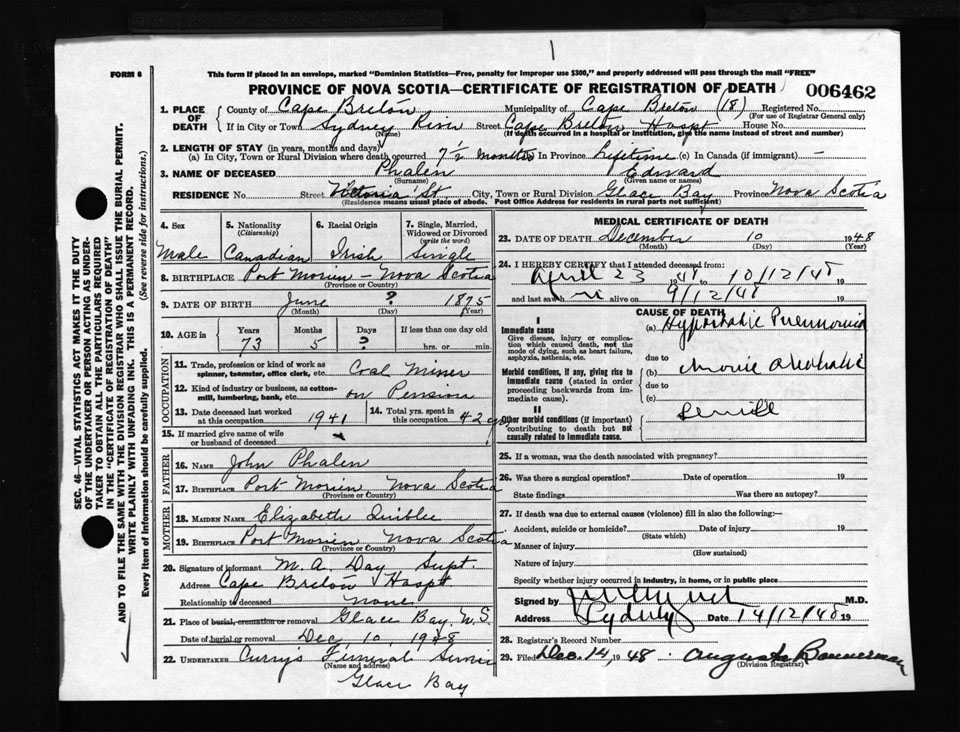 FORM 6
This form if placed in an envelope, marked "Dominion Statistics—Free, penalty for improper use $300," and properly addressed will pass through the mail "FREE"
PROVINCE OF NOVA SCOTIA—CERTIFICATE OF REGISTRATION OF DEATH 006462
1. PLACE OF DEATH
County of Cape Breton Municipality of Cape Breton (8) Registered No.
(For use of Registrar General only)
If in City or Town Sydney River Street Cape Breton Hospt House No.
(Name) (If death occurred in a hospital or institution, give the name instead of street and number)
2. LENGTH OF STAY (in years, months and days)
(a) In City, Town or Rural Division where death occurred 7½ months In Province Lifetime (c) In Canada (if immigrant) —
3. NAME OF DECEASED Phalen Edward
(Surname) (Given name or names)
RESIDENCE No. Street Victoria St City, Town or Rural Division Glace Bay Province Nova Scotia
(Residence means usual place of abode. Post Office Address for residents in rural parts not sufficient)
4. Sex Male
5. Nationality (Citizenship) Canadian
6. Racial Origin Irish
7. Single, Married, Widowed or Divorced (write the word) Single
8. BIRTHPLACE Port Morien — Nova Scotia
(Province or Country)
9. DATE OF BIRTH June ? 1875
(Month) (Day) (Year)
10. AGE in Years Months Days If less than one day old
73 5 ? hrs. or min.
OCCUPATION
11. Trade, profession or kind of work as spinner, teamster, office clerk, etc. Coal Miner
12. Kind of industry or business, as cotton-mill, lumbering, bank, etc. on Pension
13. Date deceased last worked at this occupation 1941
14. Total yrs. spent in this occupation 42 yrs
15. If married give name of wife or husband of deceased
FATHER
16. NAME John Phalen
17. BIRTHPLACE Port Morien Nova Scotia
(Province or Country)
MOTHER
18. MAIDEN NAME Elizabeth
19. BIRTHPLACE Port Morien Nova Scotia
(Province or Country)
20. Signature of informant M. A. Day Supt.
Address Cape Breton Hospt
Relationship to deceased None
21. Place of burial, cremation or removal Glace Bay, N.S.
Date of burial or removal Dec 10 1948
22. UNDERTAKER Curry's Funeral Service
(Name and address)
Glace Bay
MEDICAL CERTIFICATE OF DEATH
23. DATE OF DEATH December 10 1948
(Month) (Day)
24. I HEREBY CERTIFY that I attended deceased from:
April 23 1948 10/12/48
and last saw alive on 9/12/48 19
CAUSE OF DEATH
I
Immediate cause
Give disease, injury or complication which caused death, not the mode of dying, such as heart failure, asphyxia, asthenia, etc.
(a) Hypostatic Pneumonia
due to
Morbid conditions, if any, giving rise to immediate cause (stated in order proceeding backwards from immediate cause).
(b)
due to
(c)
II
Other morbid conditions (if important) contributing to death but not causally related to immediate cause.
Senile
25. If a woman, was the death associated with pregnancy?
26. Was there a surgical operation? Date of operation 19
State findings Was there an autopsy?
27. If death was due to external causes (violence) fill in also the following:—
Accident, suicide or homicide? Date of injury 19
(State which)
Manner of injury
(How sustained)
Nature of injury
Specify whether injury occurred in industry, in home, or in public place
Signed by M.D.
Address Sydney Date 14/12/48 19
28. Registrar's Record Number
29. Filed Dec. 14, 1948 Bannerman
(Division Registrar)
SEC. 46—VITAL STATISTICS ACT MAKES IT THE DUTY
OF THE UNDERTAKER OR PERSON ACTING AS UNDER-
TAKER TO OBTAIN ALL THE PARTICULARS REQUIRED
IN THE "CERTIFICATE OF REGISTRATION OF DEATH"
AND TO FILE THE SAME WITH THE DIVISION REGISTRAR WHO SHALL ISSUE THE BURIAL PERMIT.
WRITE PLAINLY WITH UNFADING INK. THIS IS A PERMANENT RECORD.
Every item of Information should be carefully supplied. (See reverse side for instructions.)